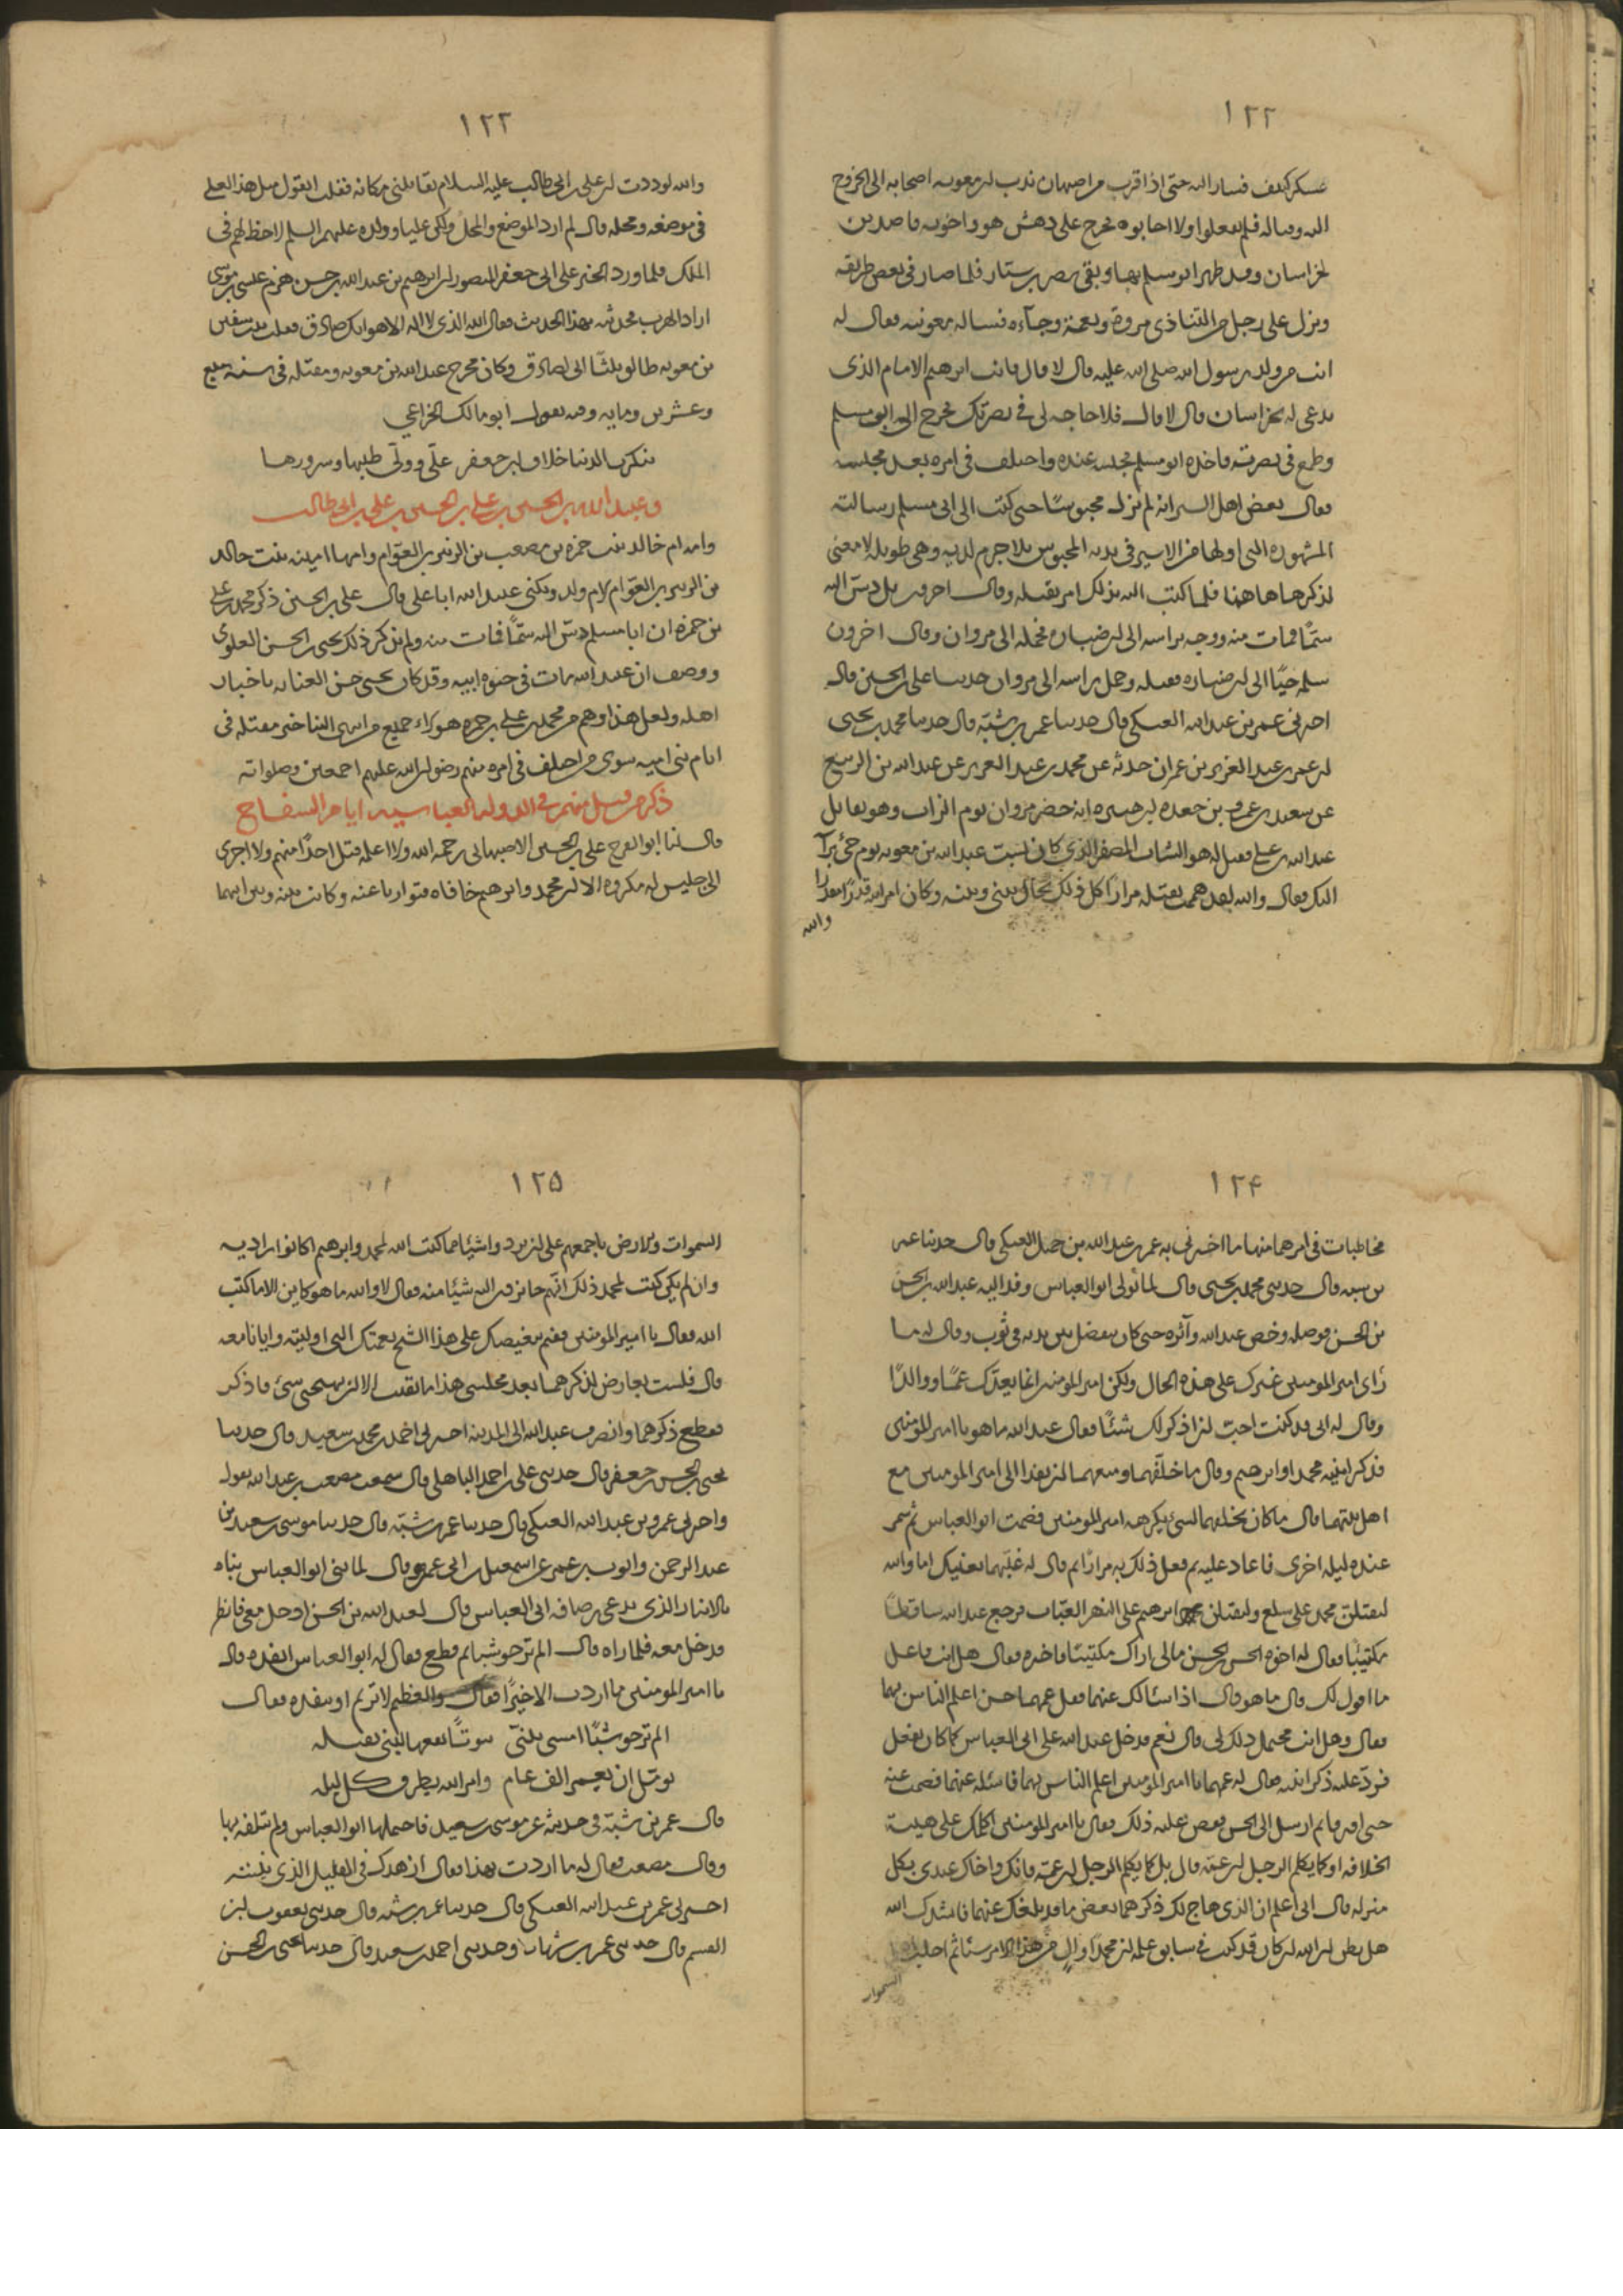 ١٢٢
عسكر كثيف فسار اليه حتى اذا قرب من اصبهان ندب له معويه اصحابه الى الخروج
اليه وقتاله فلم يفعلوا ولا اجابوه فخرج على دهش هو واخوته قاصدين
لخراسان وقد ظهر ابو مسلم بها ونفى نصر بن سيار فلما صار في بعض طريقه
ونزل على رجل من التناذى مروة ونعمة وجآءه فساله معونته فقال له
انت من ولد رسول الله صلى الله عليه قال لا قال فانت ابرهيم الامام الذى
يدعى له بخراسان قال لا قال فلا حاجه لى فى نصرتك فخرج الى ابى مسلم
وطمع فى نصرته فاخذه ابو مسلم فحبسه عنده واختلف فى امره بعد محبسه
فقال بعض اهل السير انه لم يزل محبوسًا حتى كتب الى ابى مسلم رسالته
المشهوره التى اولها من الاسير فى يديه المحبوس بلا جرم لديه وهى طويله لا معنى
لذكرها هاهنا فلما كتب اليه بذلك امر بقتله وقال اخرون بل دسّ اليه
سمًّا فمات منه ووجه براسه الى ابن ضباره فحمله الى مروان وقال اخرون
سلمه حيًا الى ابن ضباره فقتله وحمل راسه الى مروان حدثنا على بن الحسين قال
اخبرنى عمر بن عبد الله العتكى قال حدثنا عمر بن شبّة قال حدثنا محمد بن يحيى
ان عمر بن عبد العزيز بن عمران حدثه عن محمد بن عبد العزيز عن عبد الله بن الربيع
عن سعيد بن عمرو بن جعده بن هبيره انه حضر مروان يوم الزاب وهو يقاتل
عبد الله بن على فقيل له هو الشاب المصفر الذى كان يسب عبد الله بن معويه يوم جئ براسه
اليك فقال والله لقد هممت بقتله مرارًا كل ذلك يحال بينى وبينه وكان امر الله قدرًا مقدرا
والله
١٢٣
والله لوددت ان على بن ابى طالب عليه السلام يقاتلنى مكانه فقلت اتقول مثل هذا لعلى
فى موضعه ومحله قال لم ارد الموضع والمحل ولكن عليا وولده عليهم السلم لا حظ لهم فى
الملك فلما ورد الخبر على ابى جعفر المنصور ان ابرهيم بن عبد الله بن حسن هزم عيسى بن موسى
اراد الهرب فحدثته بهذا الحديث فقال الله الذى لا اله الا هو انك صادق فقلت بنت سفين
بن معويه طالق ثلثًا انى لصادق وكان مخرج عبد الله بن معويه ومقتله فى سنه سبع
وعشرين ومايه وفيه يقول ابو مالك الخزاعي
تنكرت الدنيا خلاف ابن جعفر على وولّى طيبها وسرورها
وعبيد الله بن الحسين بن على بن الحسين بن على بن ابى طالب
وامه ام خالد بنت حمزه بن مصعب بن الزبير بن العوّام وامها امينه بنت خالد
بن الزبير بن العوّام لام ولد ويكنى عبيد الله ابا على قال على بن الحسين ذكر محمد بن على
بن حمزه ان ابا مسلم دسّ اليه سمًّا فمات منه ولم يذكر ذلك يحيى بن الحسن العلوى
ووصف ان عبيد الله مات فى حيوه ابيه وقد كان يحيى حسن العنايه باخبار
اهله ولعل هذا وهم من محمد بن على بن حمزه هولاء جميع من انتهى الينا خبر مقتله فى
ايام بنى اميه سوى من اختلف فى امره منهم رضوان الله عليهم اجمعين وصلواته
ذكر من قتل منهم فى الدوله العباسيه ايام السفاح
قال لنا ابو الفرج على بن الحسين الاصبهانى رحمه الله ولا اعلمه قتل احدًا منهم ولا اجرى
الى جليس له مكروه الا ان محمد وابرهيم خافاه فتواريا عنه وكانت بينه وبين ابيهما
١٢۴
مخاطبات فى امرهما منها ما اخبرنى به عمر بن عبد الله بن جميل العتكى قال حدثنا عمر
بن شبه قال حدثنى محمد بن يحيى قال لما تولى ابو العباس وفد اليه عبد الله بن الحسن
بن الحسن فوصله وخص عبد الله وآثره حتى كان يتفضل بين يديه فى ثوب وقال له ما
رَاى امير المومنين غيرك على هذه الحال ولكن امير المومنين انما يعدّك عمًّا ووالدًا
وقال له انى قد كنت احبّ ان اذكر لك شئًا فقال عبد الله ما هو يا امير المومنين
فذكر ابنيه محمدا وابرهيم وقال ما خلّفهما ومنعهما ان يفدا الى امير المومنين مع
اهل بيتهما قال ما كان تخلفهما لشئ يكرهه امير المومنين فصمت ابو العباس ثم سمر
عنده ليله اخرى فاعاد عليه ثم فعل ذلك به مرارًا ثم قال له غيّبهما بعينك اما والله
ليقتلن محمد على سلع وليقتلن ابرهيم على النهر العيّاب فرجع عبد الله ساقطًا
مكتئبًا فقال له اخوه الحسن بن الحسن مالى اراك مكتئبًا فاخبره فقال هل انت فاعل
ما اقول لك قال ما هو قال اذا سئالك عنهما فقل عمهما حسن اعلم الناس بهما
فقال وهل انت محتمل ذلك لى قال نعم فدخل عبد الله على ابى العباس كما كان يفعل
فردّ عليه ذكر ابنيه فقال له عمهما يا امير المومنين اعلم الناس بهما فاسئله عنهما فصمت عنه
حتى افترقا ثم ارسل الى الحسن فقص عليه ذلك فقال يا امير المومنين اكلمك على هيبة
الخلافه او كما يكلم الرجل ابن عمّه قال بل كما يكلم الرجل ابن عمّه فانك واخاك عندى بكل
منزله قال انى اعلم ان الذى هاج لك ذكرهما بعض ما قد بلغك عنهما فانشدك الله
هل تظن ان الله ان كان قد كتب فى سابق علمه ان محمدًا والٍ من هذا الامر شئا ثم اجلب اهل
السموات
١٢۵
السموات والارض باجمعهم على ان يردوا شيئا مما كتب الله لمحمد وابرهيم اكانوا راديه
وان لم يكن كتب لمحمد ذلك انّهم حايزون اليه شيئا منه فقال لا والله ما هو كاين الا ما كتب
الله فقال يا امير المومنين ففيم تنغيصك على هذا الشيخ نعمتك التى اوليته وايانا معه
قال فلست بعارض لذكرهما بعد مجلسى هذا ما بقيت الا ان يهيجنى شئ فاذكر
فقطع ذكرهما وانصرف عبد الله الى المدينه اخبرنى احمد بن محمد بن سعيد قال حدثنا
يحيى بن الحسن بن جعفر قال حدثنى على بن احمد الباهلى قال سمعت مصعب بن عبد الله يقول
واخبرنى عمرو بن عبد الله العتكى قال حدثنا عمر بن شبّه قال حدثنا موسى بن سعيد بن
عبد الرحمن وايوب بن عمر عن اسمعيل بن ابى عمرو قال لما بنى ابو العباس بناه
بالانبار الذى يدعى رصافه ابى العباس قال لعبد الله بن الحسن ادخل معى فانظر
فدخل معه فلما راه قال الم تر حوشبا ثم قطع فقال له ابو العباس انفذه قال
يا امير المومنين ما اردت الا خيرًا فقال والعظيم لا تريم او تنفذه فقال
الم تر حوشبًا امسى يبنّى بيوتًا نفعها لبنى نفيله
يومّل ان يعمر الف عام وامر الله يطرق كل ليله
قال عمر بن شبّة فى حديثه عن موسى بن سعيد فاحتملها ابو العباس ولم يتلفه بها
وقال مصعب فقال له ما اردت بهذا فقال ازهدك فى القليل الذى بنيته
اخبرنى عمر بن عبد الله العتكى قال حدثنا عمر بن شبه قال حدثنى يعقوب بن
القسم قال حدثنى عمر بن شهاب وحدثنى احمد بن سعيد قال حدثنا يحيى بن الحسن